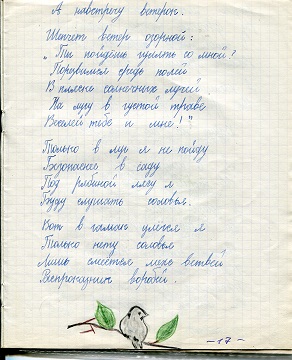 А навстречу ветерок.
Шепчет ветер озорной:
"Ты пойдёшь гулять со мной?
Порезвимся средь полей
В пляске солнечных лучей
На лугу в густой траве
Веселей тебе и мне!"
Только в луг я не пойду
Безопаснее в саду
Под рябиной лягу я
Буду слушать соловья.
Кот в гамаке улёгся я
Только нету соловья
Лишь смеётся меж ветвей
Воробей.
-17-